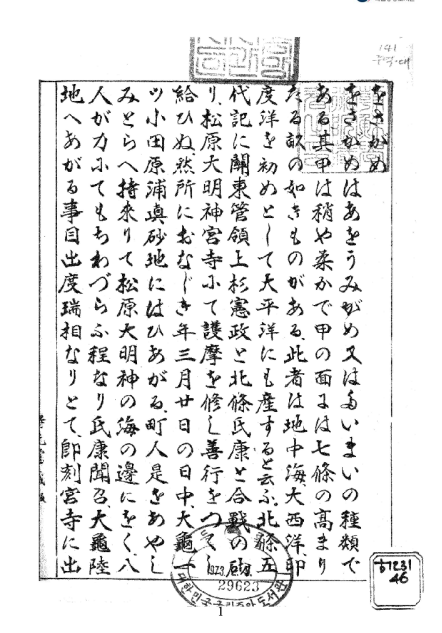 141
をさかめ
をさかめはあをうみがめ又はたいまいの種類で
ある其甲は稍や柔かで甲の面には七條の高まり
たる畝の如きものがある此者は地中海大西洋印
度洋を初めとして大平洋にも産すると云ふ北條五
代記に關東管領上杉憲政と北條氏康と合戰の砌
り松原大明神宮寺にて護摩を修し善行をつくし
給ひぬ然所におなじき年三月廿日の日中大龜一
ツ小田原浦眞砂地にはひあがる町人是をあやし
みとらへ持來りて松原大明神の海の邊にをく八
人が力にてもちわづらふ程なり氏康聞召大龜陸
地へあがる事目出度瑞相なりとて即刻宮寺に出
29623
46
1